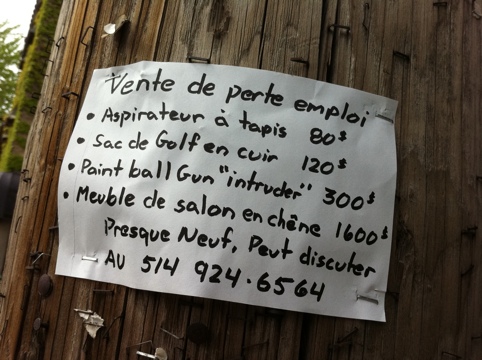 Vente de perte emploi
• Aspirateur à tapis 80$
• Sac de Golf en cuir 120$
• Paint ball Gun "intruder" 300$
• Meuble de salon en chêne 1600$
Presque Neuf, Peut discuter
AU 514 924.6564